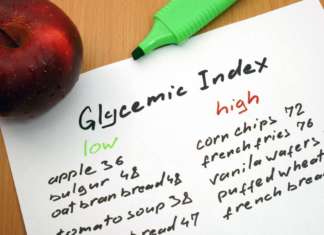 Glycemic Index
low
apple 36
bulgur 48
oat bran bread 48
tomato soup 38
bread 47
high
corn chips 72
french fries 76
vanila wafers
puffed wheat
french brea